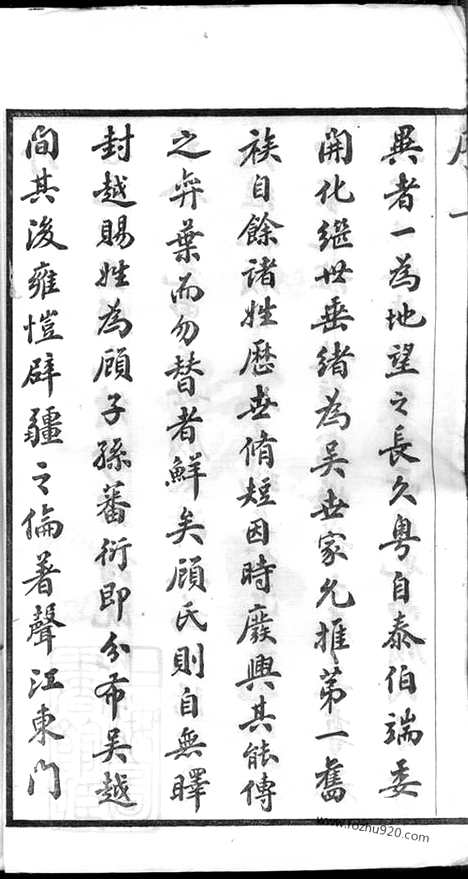 異者一為地望之長久粵自泰伯端委
開化繼世垂緒為吳世家允推第一舊
族自餘諸姓歷世脩短因時廢興其能傳
之弈葉而勿替者鮮矣顧氏則自無曎
封越賜姓為顧子孫蕃衍即分布吳越
間其後雍愷辟疆之倫著聲江東門
www.fozhu920.com